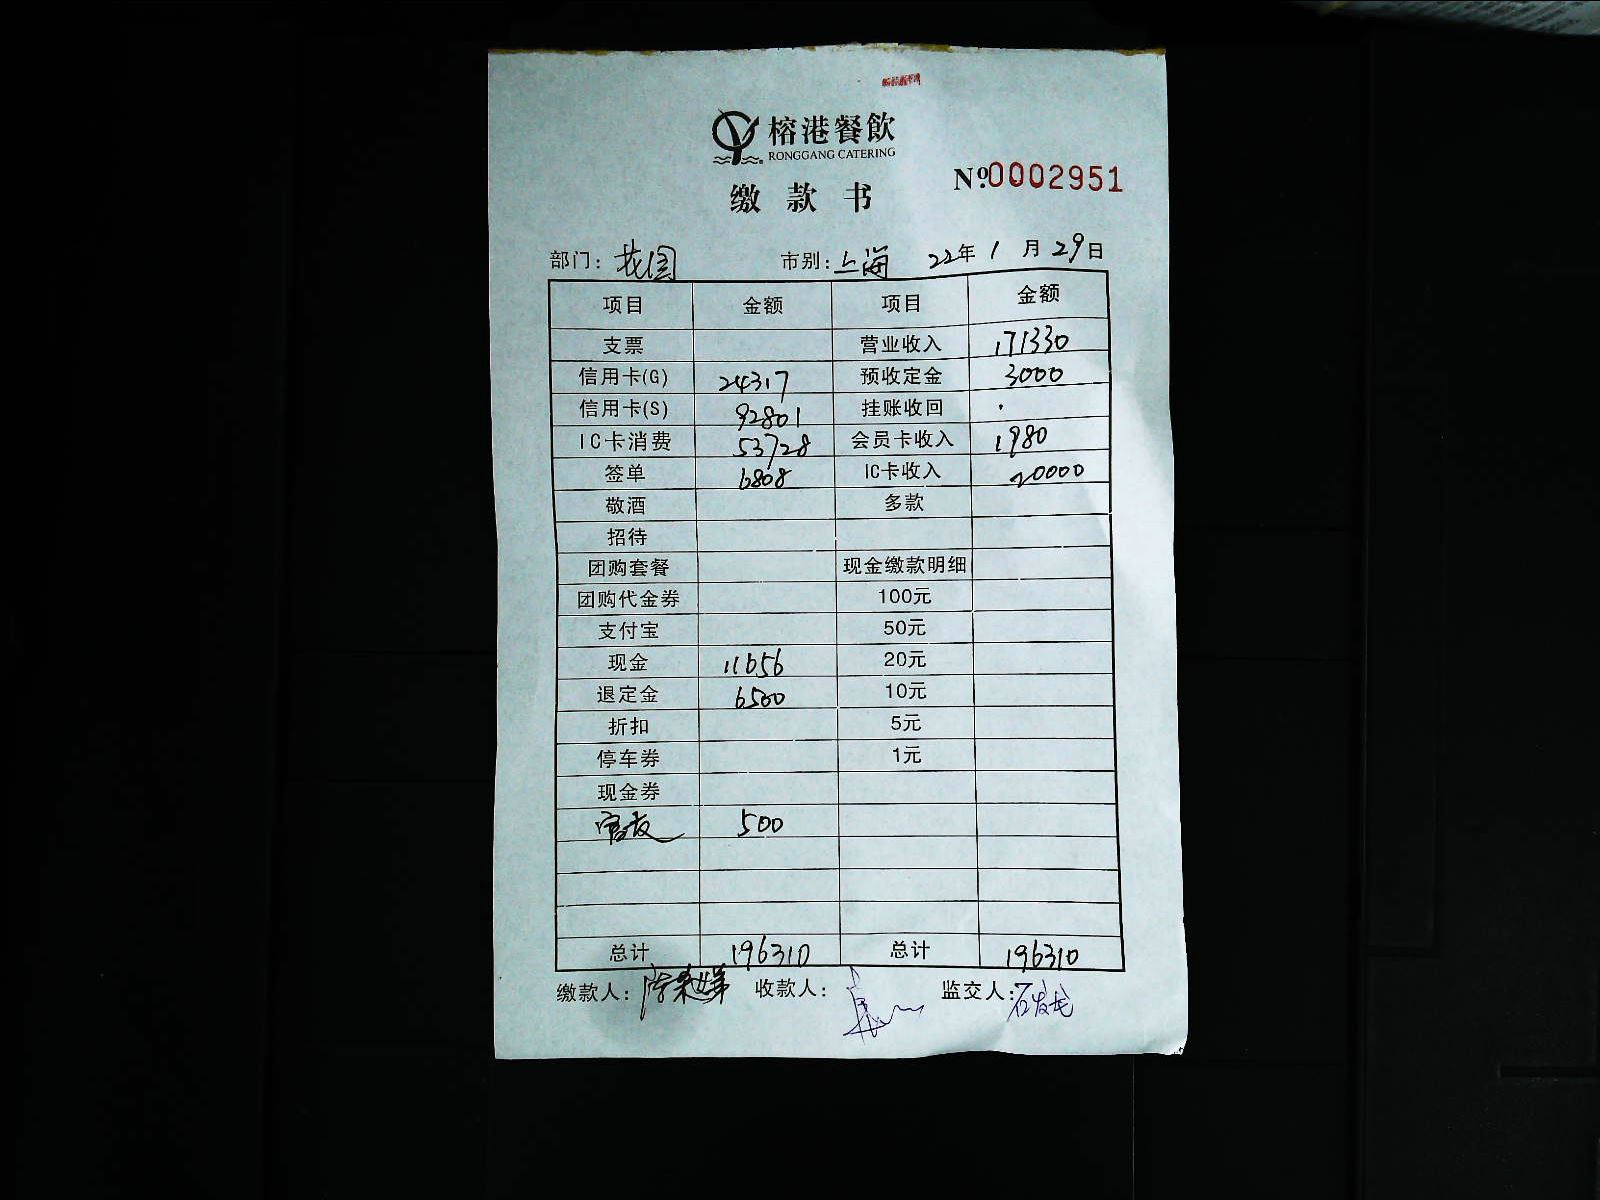 榕港餐飲
RONGGANG CATERING
缴款书
№0002951
部门: 花园 市别: 上海 22年 1月 29日
项目 金额 项目 金额
支票 营业收入 171330
信用卡(G) 24317 预收定金 3000
信用卡(S) 92801 挂账收回
IC卡消费 53728 会员卡收入 1980
签单 6808 IC卡收入 20000
敬酒 多款
招待
团购套餐 现金缴款明细
团购代金券 100元
支付宝 50元
现金 11656 20元
退定金 6500 10元
折扣 5元
停车券 1元
现金券
500
总计 196310 总计 196310
缴款人: 收款人: 监交人: 石发龙